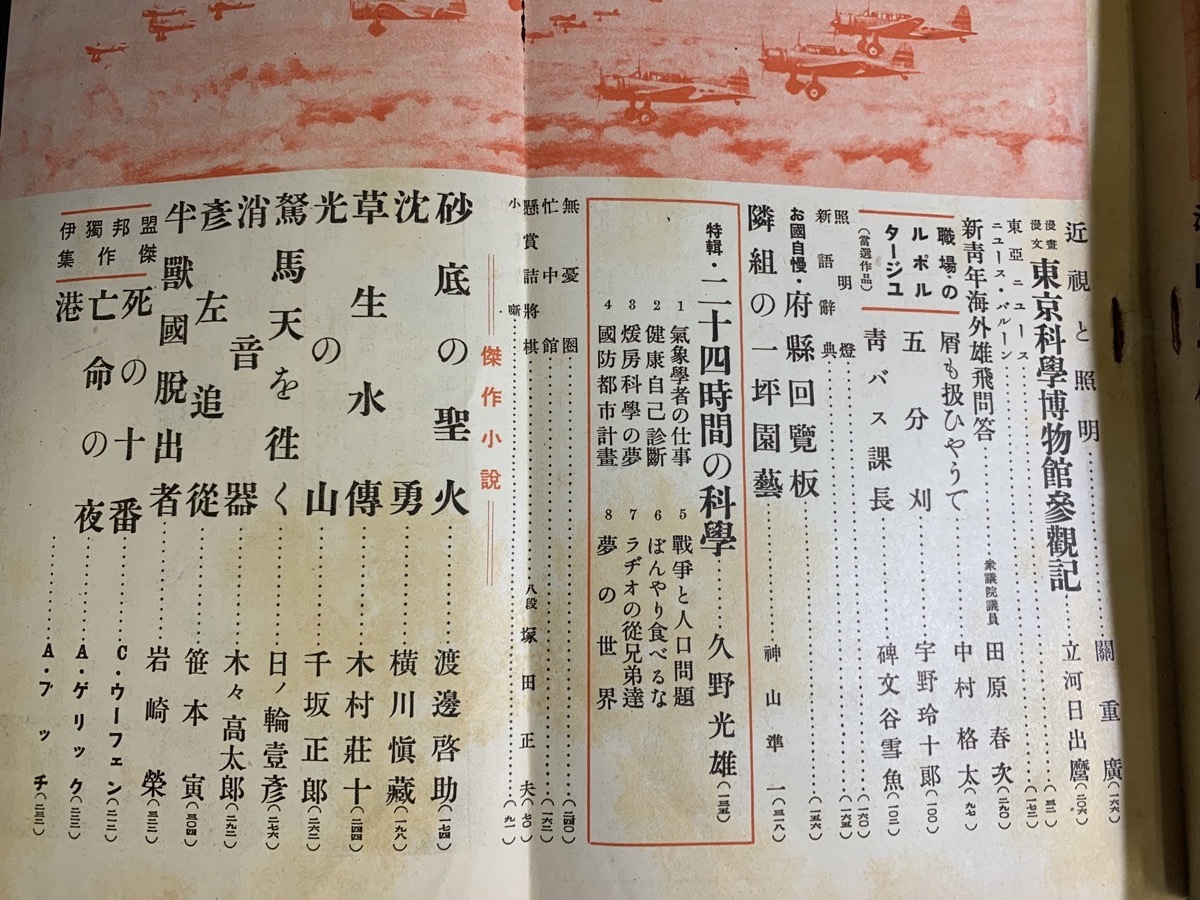 近視と照明……關重廣(一六六)
漫畫漫文 東京科學博物館參觀記……立河日出麿(二〇六)
東亞ニュース……(三二)
ニュース・バルーン……(一七二)
新靑年海外雄飛問答……衆議院議員 田原春次(二九〇)
職場のルポルタージユ(當選作品)
屑も扱ひやうで……中村格太(九七)
五分刈……宇野玲十郞(一〇〇)
靑バス課長……碑文谷雪魚(一〇二)
照明燈……(一六〇)
新語辭典……(一六五)
お國自慢・府縣回覽板……(一五六)
隣組の一坪園藝……神山準一(三一八)
特輯・二十四時間の科學……久野光雄(一三五)
1 氣象學者の仕事
2 健康自己診斷
3 煖房科學の夢
4 國防都市計畫
5 戰爭と人口問題
6 ぼんやり食べるな
7 ラヂオの從兄弟達
8 夢の世界
無憂圈……(二四〇)
忙中館……(一六二)
懸賞詰將棋……八段 塚田正夫(七〇)
小噺……(九一)
傑作小說
砂底の聖火……渡邊啓助(一七四)
沈勇……橫川愼藏(一九八)
草生水傳……木村莊十(二四四)
光の山……千坂正郞(二六二)
駑馬天を徃く……日ノ輪壹彥(二七六)
消音器……木々高太郞(二九二)
彥左追從……笹本寅(三〇四)
半獸國脫出者……岩崎榮(三三二)
盟邦獨伊傑作集
死の十番……C・ウーフェン(二一二)
亡命の夜……A・ゲリック(二二二)
港……A・ブッチ(二三二)